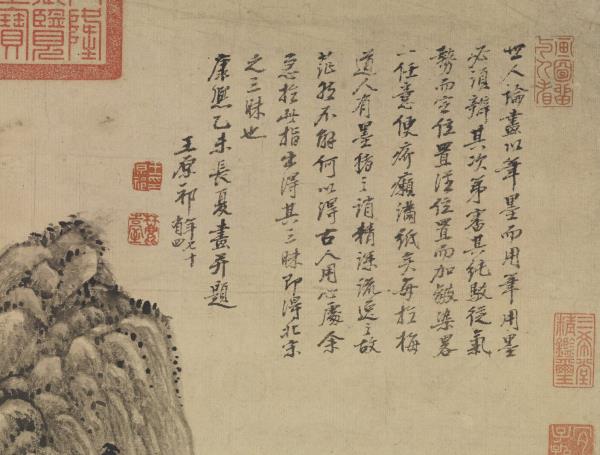 畫圖留與人看
世人論畫以筆墨而用筆用墨
必須辨其次第審其純駁從氣
勢而定位置從位置而加皴染畧
一任意便疥癩滿紙矣每於梅
道人有墨猪之誚精深流逸之故
茫然不解何以得古人用心處余
急於此指出得其三昧即得北宋
之三昧也
康熙乙未長夏畫并題
王原祁年七十有四
三希堂精鑑璽